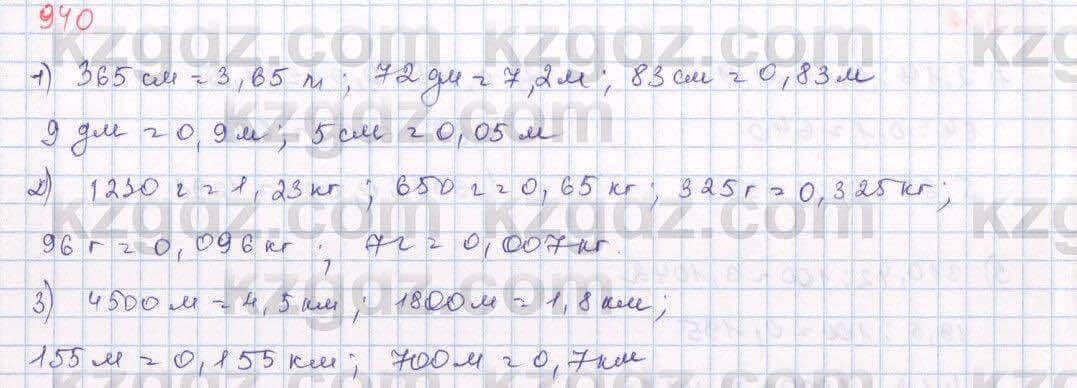 940
1) 365 см = 3,65 м; 72 дм = 7,2 м; 83 см = 0,83 м
9 дм = 0,9 м; 5 см = 0,05 м
2) 1230 г = 1,23 кг; 650 г = 0,65 кг; 325 г = 0,325 кг;
96 г = 0,096 кг; 7 г = 0,007 кг.
3) 4500 м = 4,5 км; 1800 м = 1,8 км;
155 м = 0,155 км; 700 м = 0,7 км
kzgdz.com